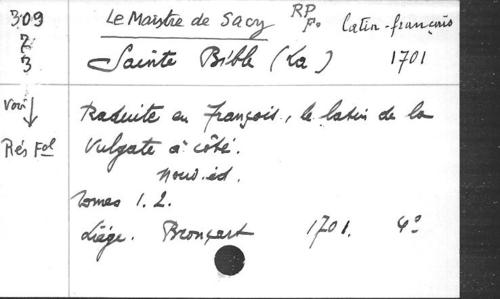 309
7
3
Voir
Rés Fol
Le Maistre de Sacy
RP
P.
latin-françois
Sainte Bible (La)
1701
traduite en François, le latin de la
Vulgate à côté.
nouv. éd.
tomes 1. 2.
Liège. Broncart 1701. 4°